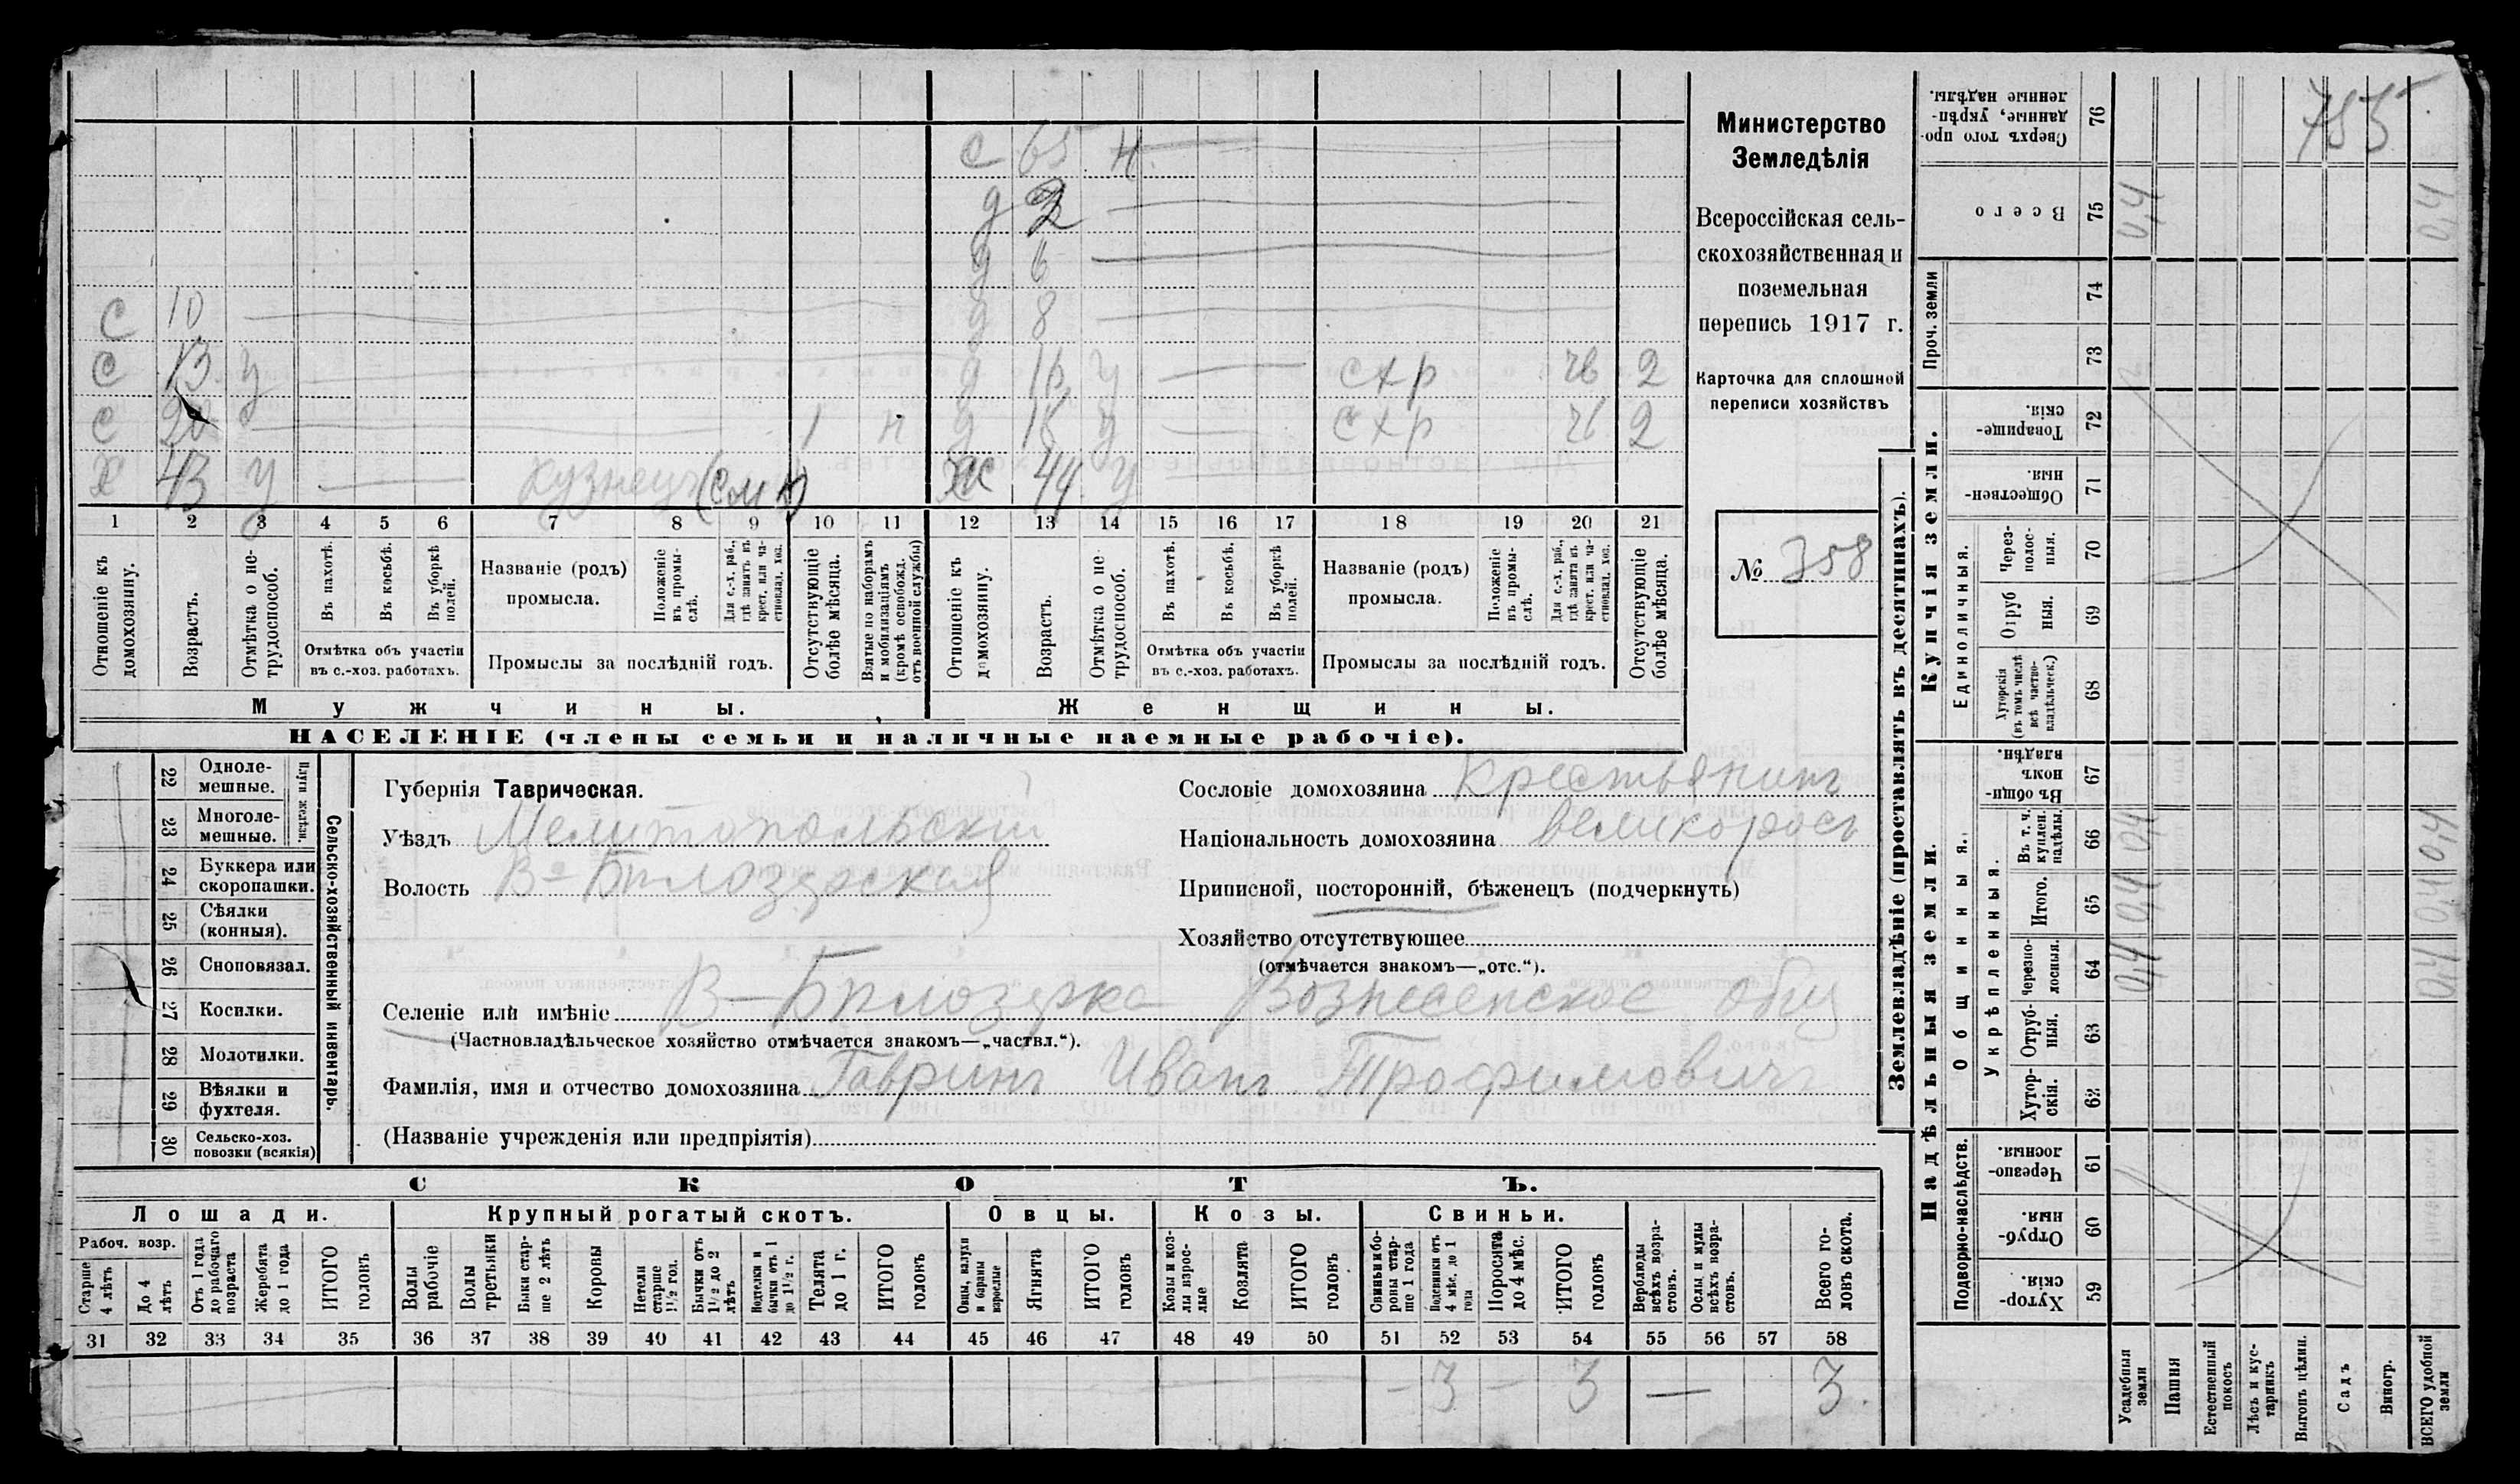 с 65 н
д 2
д 6
с 10 д 8
с 13 у д 16 у схр чв 2
с 20 1 н д 18 у схр чв 2
х 43 у кузнецъ (см н) ж 44 у
1 2 3 4 5 6 7 8 9 10 11 12 13 14 15 16 17 18 19 20 21
Отношеніе къ домохозяину.
Возрастъ.
Отмѣтка о нетрудоспособ.
Въ пахотѣ.
Въ косьбѣ.
Въ уборкѣ полей.
Отмѣтка объ участіи
въ с.-хоз. работахъ.
Названіе (родъ)
промысла.
Положеніе въ промыслѣ.
Для с.-х. раб., гдѣ занятъ въ крест. или частновлад. хоз.
Промыслы за послѣдній годъ.
Отсутствующіе болѣе мѣсяца.
Взятые по наборамъ и мобилизаціямъ (кромѣ освобожд. отъ военной службы)
Отношеніе къ домохозяину.
Возрастъ.
Отмѣтка о нетрудоспособ.
Въ пахотѣ.
Въ косьбѣ.
Въ уборкѣ полей.
Отмѣтка объ участіи
въ с.-хоз. работахъ.
Названіе (родъ)
промысла.
Положеніе въ промыслѣ.
Для с.-х. раб., гдѣ занята въ крест. или частновлад. хоз.
Промыслы за послѣдній годъ.
Отсутствующіе болѣе мѣсяца.
Мужчины. Женщины.
НАСЕЛЕНІЕ (члены семьи и наличные наемные рабочіе).
Министерство
Земледѣлія
Всероссійская сель-
скохозяйственная и
поземельная
перепись 1917 г.
Карточка для сплошной
переписи хозяйствъ
№ 358
Сельско-хозяйственный инвентарь.
Плуги желѣзн.
22 Одноле-
мешные.
23 Многоле-
мешные.
24 Буккера или
скоропашки.
25 Сѣялки
(конныя).
26 Сноповязал.
27 Косилки.
28 Молотилки.
29 Вѣялки и
фухтеля.
30 Сельско-хоз.
повозки (всякія)
Губернія Таврическая.
Уѣздъ Мелитопольскій
Волость В-Бѣлозерская
Сословіе домохозяина Крестьянинъ
Національность домохозяина великоросъ
Приписной, посторонній, бѣженецъ (подчеркнуть)
Хозяйство отсутствующее
(отмѣчается знакомъ—„отс.“).
Селеніе или имѣніе В-Бѣлозерка Вознесенское общ
(Частновладѣльческое хозяйство отмѣчается знакомъ—„частвл.“).
Фамилія, имя и отчество домохозяина Гавринъ Иванъ Трофимовичъ
(Названіе учрежденія или предпріятія)
СКОТЪ.
Лошади. Крупный рогатый скотъ. Овцы. Козы. Свиньи.
Рабоч. возр.
Старше 4 лѣтъ
До 4 лѣтъ
Отъ 1 года до рабочаго возраста
Жеребята до 1 года
ИТОГО головъ
Волы рабочіе
Волы третьяки
Быки старше 2 лѣтъ
Коровы
Нетели старше 1½ год.
Бычки отъ 1½ до 2 лѣтъ
Подтелки и бычки отъ 1 до 1½ г.
Телята до 1 г.
ИТОГО головъ
Овцы, валухи и бараны взрослые
Ягнята
ИТОГО головъ
Козы и козлы взрослые
Козлята
ИТОГО головъ
Свиньи и боровы старше 1 года
Подсвинки отъ 4 мѣс. до 1 года
Поросята до 4 мѣс.
ИТОГО головъ
Верблюды всѣхъ возрастовъ.
Ослы и мулы всѣхъ возрастовъ.
Всего головъ скота.
31 32 33 34 35 36 37 38 39 40 41 42 43 44 45 46 47 48 49 50 51 52 53 54 55 56 57 58
— 3 — 3 — 3
Землевладѣніе (проставлять въ десятинахъ).
Надѣльныя земли. Купчія земли. Проч. земли
Подворно-наслѣдств.
Общинныя.
Укрѣпленныя.
Единоличныя.
59 Хуторскія.
60 Отрубныя.
61 Черезполосныя.
62 Хуторскія.
63 Отрубныя.
64 Черезполосныя. 0,4 0,4
65 Итого. 0,4 0,4
66 Въ т. ч. куплен. надѣлы. 0,4 0,4
67 Въ общинномъ владѣн.
68 Хуторскія (въ томъ числѣ всѣ частновладѣльческ.)
69 Отрубныя.
70 Черезполосныя.
71 Общественныя
72 Товарищескія.
73
74
75 Всего 0,4 0,4
76 Сверхъ того проданные, укрѣпленные надѣлы.
755
Усадебныя земли
Пашня
Естественный покосъ
Лѣсъ и кустарникъ
Выгонъ цѣлин.
Садъ
Виногр.
ВСЕГО удобной земли